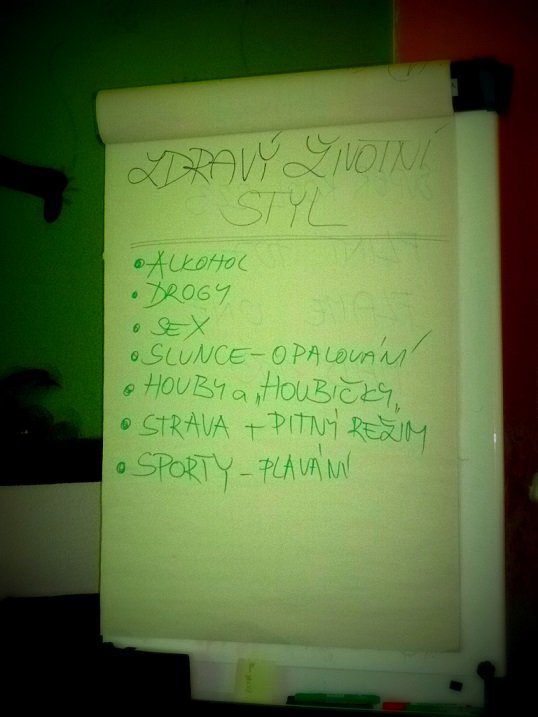 ZDRAVÝ ŽIVOTNÍ
STYL
• ALKOHOL
• DROGY
• SEX
• SLUNCE - OPALOVÁNÍ
• HOUBY a „HOUBIČKY„
• STRAVA + PITNÝ REŽIM
• SPORTY - PLAVÁNÍ